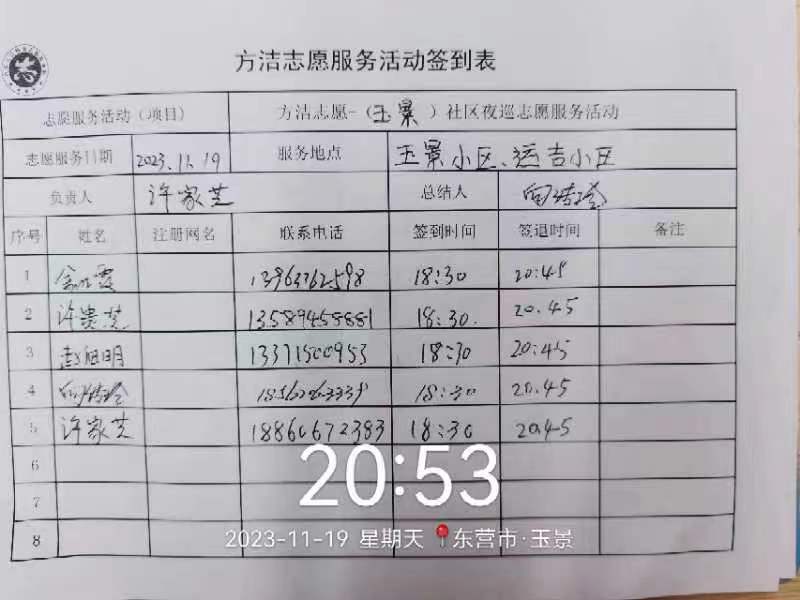 方洁志愿服务活动签到表
志愿服务活动（项目） 方洁志愿-（玉景）社区夜巡志愿服务活动
志愿服务日期 2023.11.19 服务地点 玉景小区、运吉小区
负责人 许家芝 总结人
序号 姓名 注册网名 联系电话 签到时间 签退时间 备注
1 13963762598 18:30 20:45
2 许贵芝 13589458881 18:30. 20.45
3 赵旭明 13371500953 18:30 20:45
4 18:30 20.45
5 许家芝 18860672383 18:30 20.45
6
7
8
20:53
2023-11-19 星期天 东营市·玉景